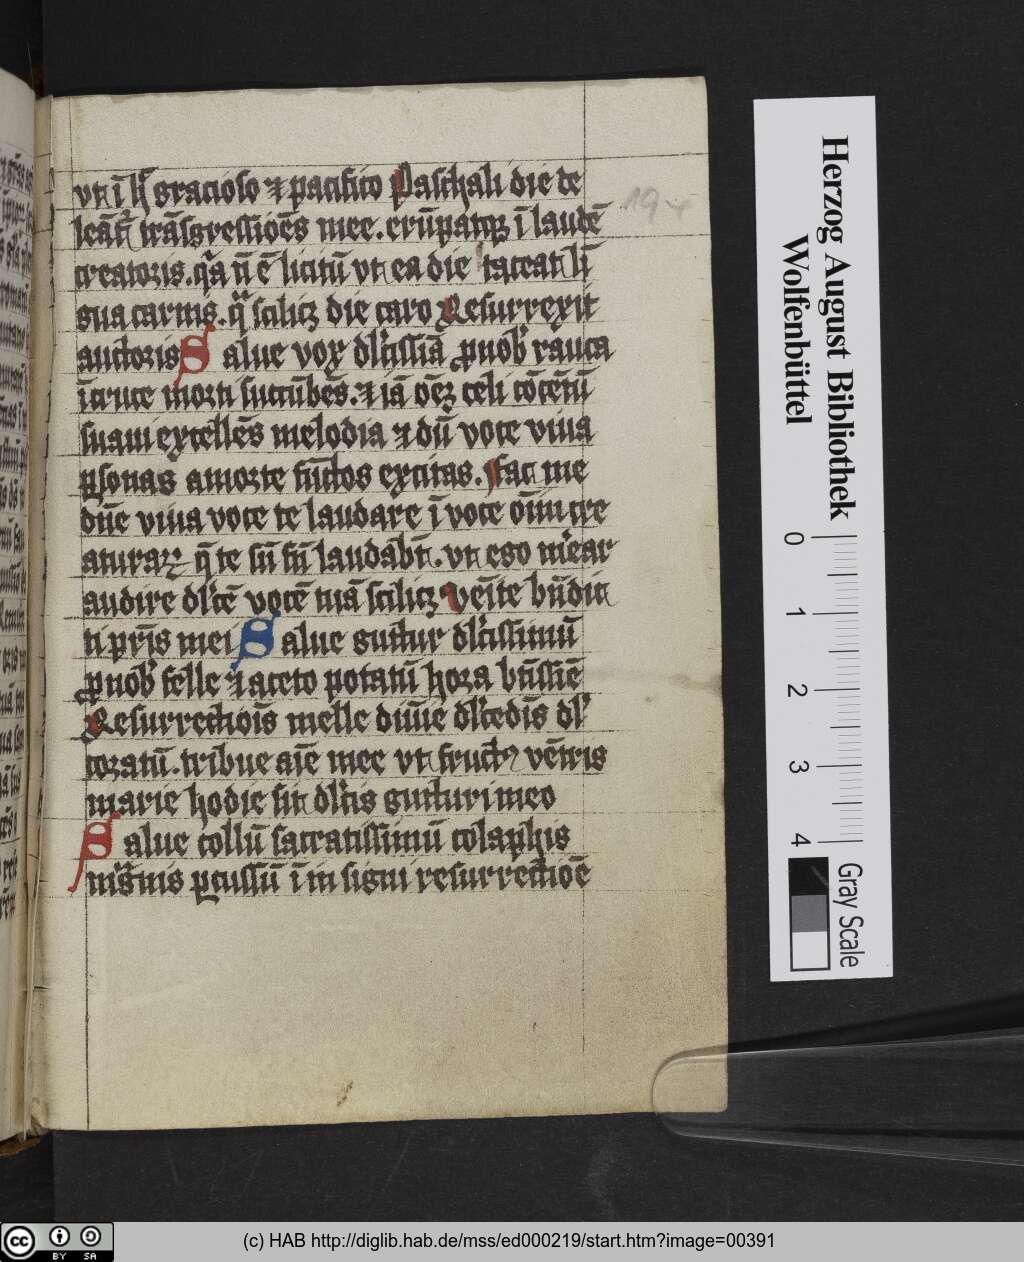 vt ī hͦ gracioso ⁊ pacifico Paschali die de
leāt͛ trāsgressiōēs mee. erūpatqꝫ ī laudē
creatoris. q̄a nō ē licitū vt ea die taceat li
gua carnis. qͣ scilicꝫ die caro Resurrexit
auctoris Salue vox dl̓cissīa ꝓ nob̓ rauca
ī cruce morti succūbēs. ⁊ iā ōēꝫ celi cōcētū
suaui excellēs melodia ⁊ dū voce viua
ꝑsonas a morte sūctos excitas. Fac me
dn̄e viua voce te laudare ī voce oīm cre
aturaꝝ q̄ te sn̄ fī laudābt̄. vt ego m̓ear
audire dl̓cē vocē tuā scilicꝫ Veīte bn̄dic
ti pr̄is mei Salue guttur dl̓cissimū
ꝓ nob̓ felle ⁊ aceto potatū hora bt̄issīē
Resurrectiōis melle diuīe dl̓cedīs dl̓
coratū. tribue aīe mee vt fructꝰ vētris
marie hodie sit dl̓cis gutturi meo
Salue collū sacratissimū colaphis
mag̅nis ꝑcussū ī insigni resurrectiōē
194
Herzog August Bibliothek
Wolfenbüttel
0 1 2 3 4
Gray Scale
cc BY SA
(c) HAB http://diglib.hab.de/mss/ed000219/start.htm?image=00391